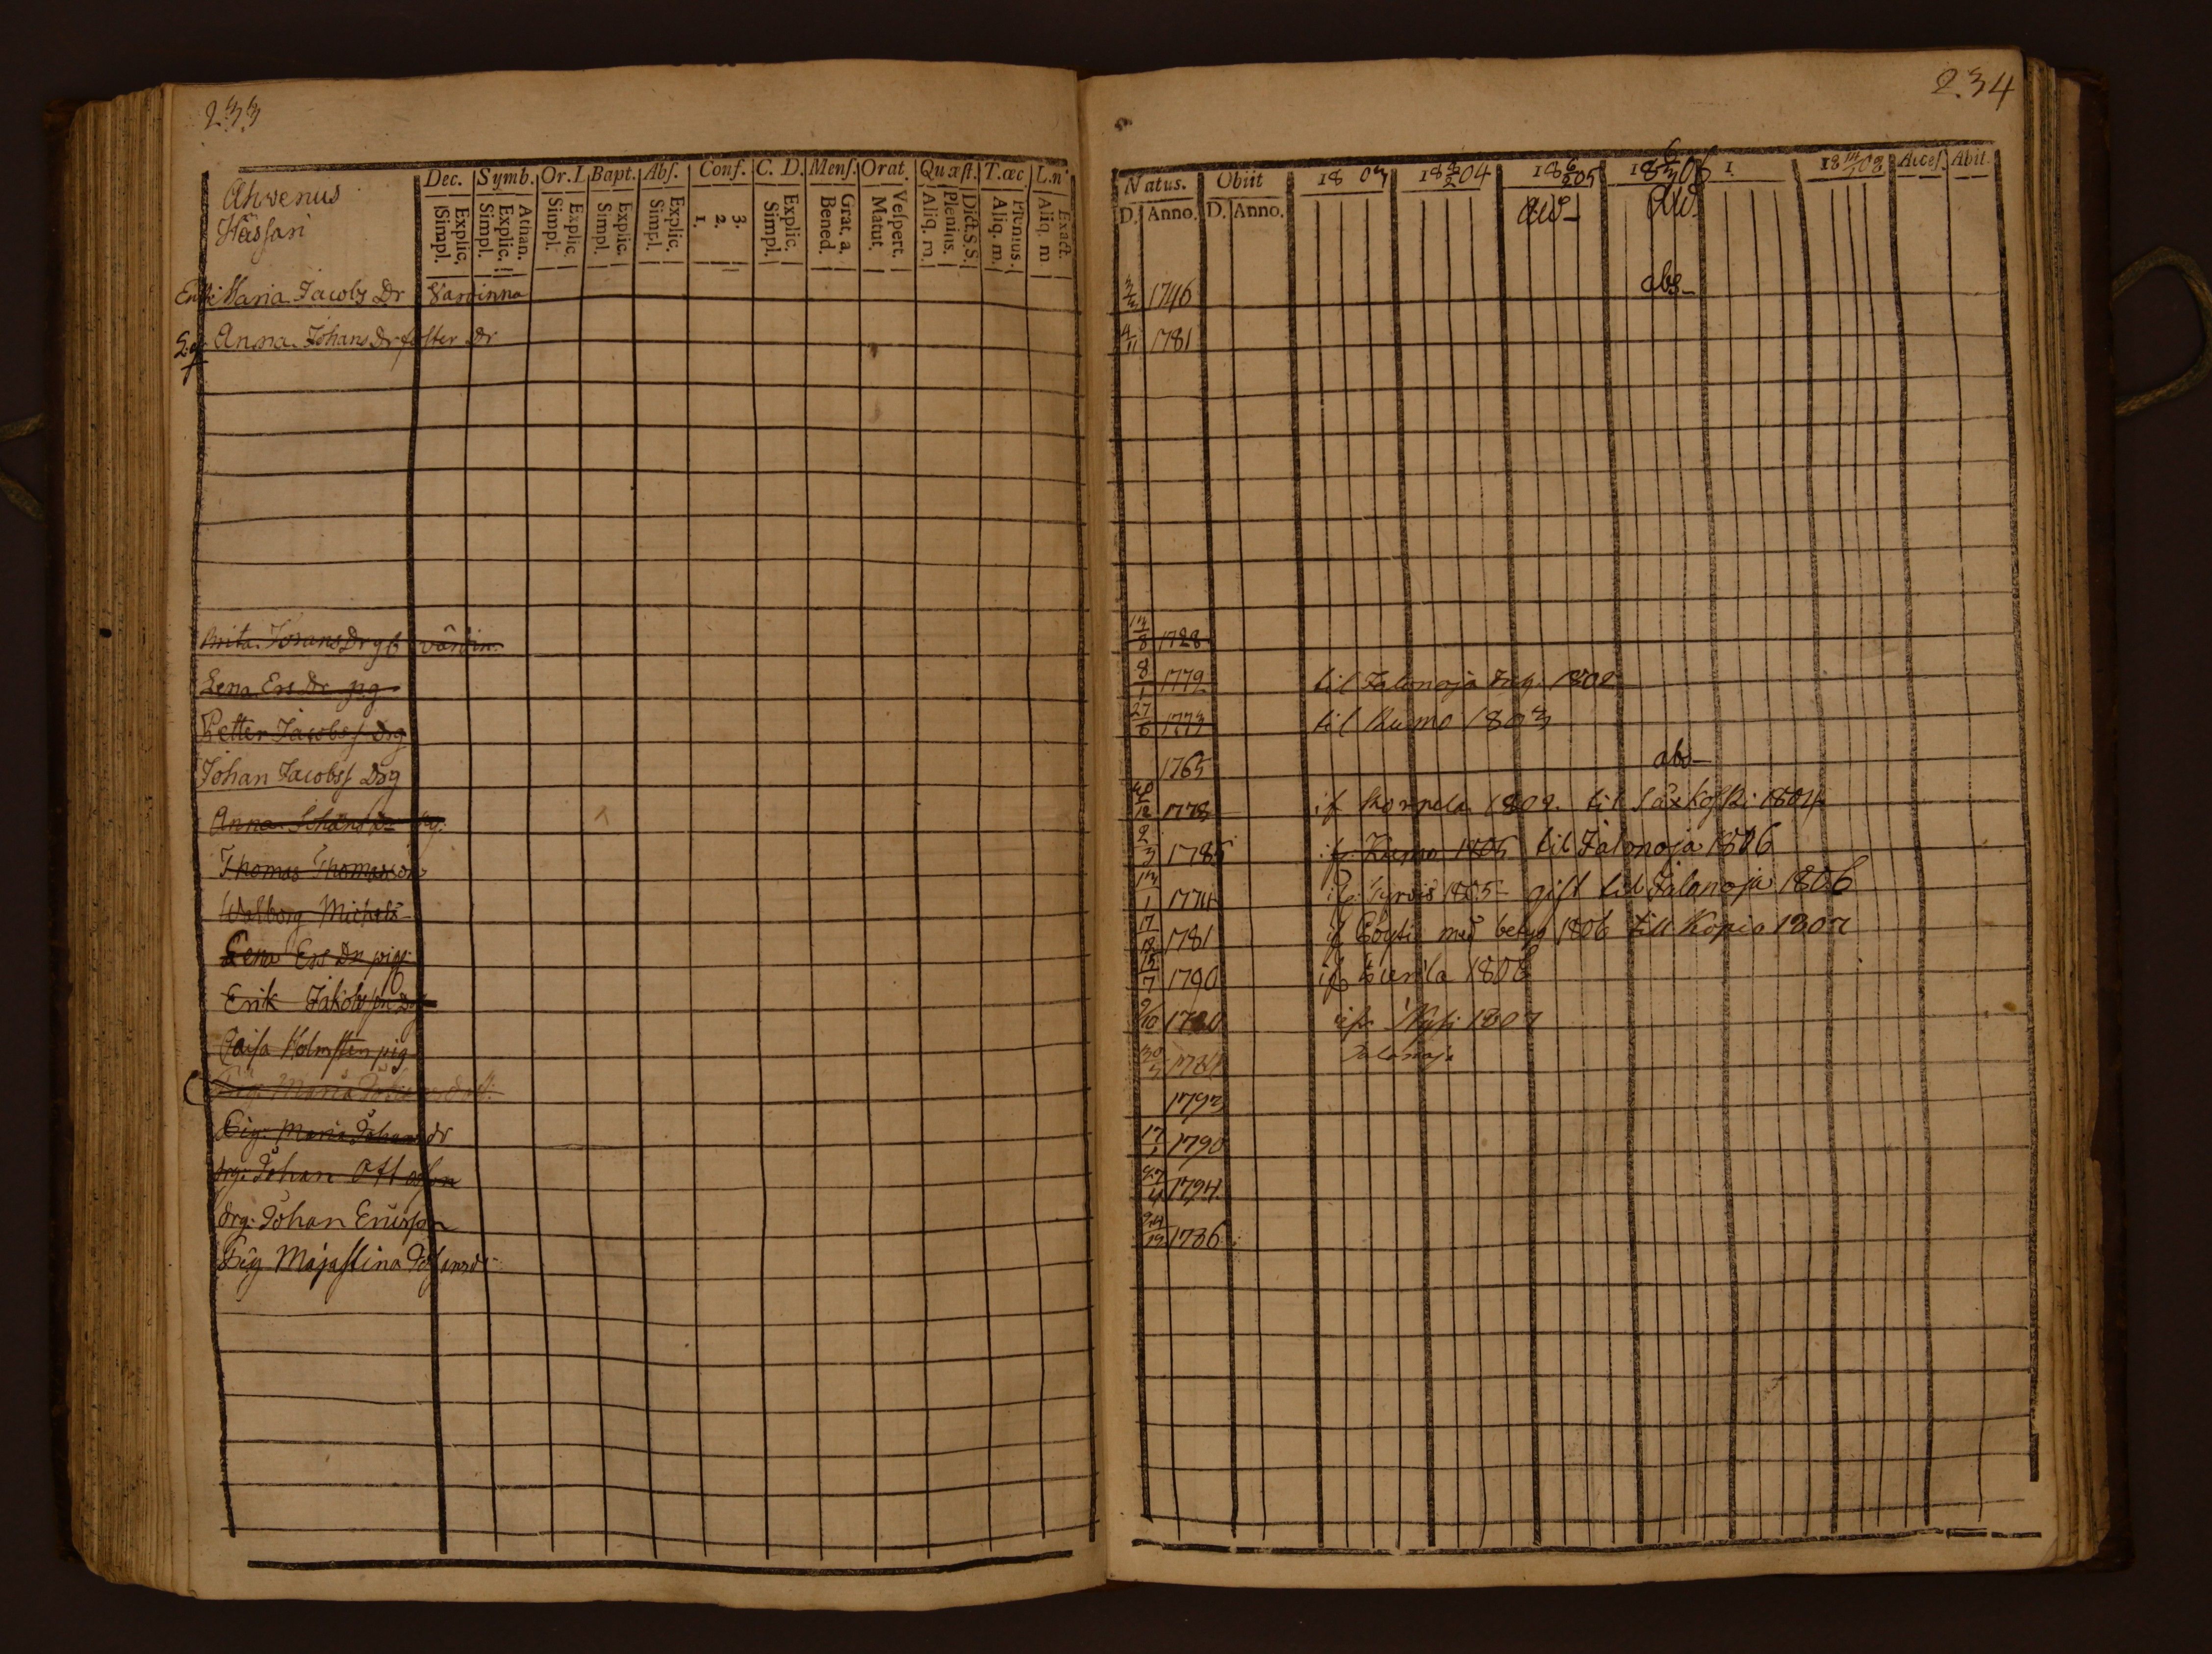 233
Ahwenus
Hässari
Dec. Symb. Or. I. Bapt. Abs. Conf. C. D. Mens. Orat. Quæst. T. œc L. n
Explic. Simpl. Athan. Explic. Simpl. Explic. Simpl. Explic. Simpl. Explic. Simpl. 3. 2. 1. Explic. Simpl. Grat. a. Bened. Vespert. Matut. Dict. S. S. Plenius. Aliq. m. Plenius. Aliq. m. Exact. Aliq. m.
Enk: Maria Jacobs Dr Värdinna
Anna Johans Dr foster Dr
Brita Johans Dr gl värdin
Lena Ers Dr pig
Petter Jacobss Drg
Johan Jacobss Drg
Anna
Thomas Thomasson
Walborg Michels
Lena Ers Dr pig
Erik Jakobsson Drg
Caisa Holmsten pig
Pig: Maria
Pig: Maria Johans dr
drg: Johan Ottosson
drg: Johan Ericsson
Pig Majastina
234
Natus. Obiit 18 03 18 4/2 04 18 6/2 05 18 6/3 06 1 18 14/3 08 Acces. Abit.
D. Anno. D. Anno.
1746 abs
4/11 1781
14/8 1728
8/1 1779 til Jalanoja 1802
27/6 1773 til Kumo 1803
1765 abs
1778 if Korpela 1802. til Säxkoski 1804
2/3 1785 if. Kumo 1805 til Jalanoja 1806
1774 if. Tyrvis 1805 gift til Jalanoja 1806
17/12 1781 if Cöyliö med betyg 1806 till Kopia 1807
15/7 1790 if 1806
9/10 1780 if. 1807
30/3 1781 Jalanoja
1793
17 1790
27/4 1794
24 1786